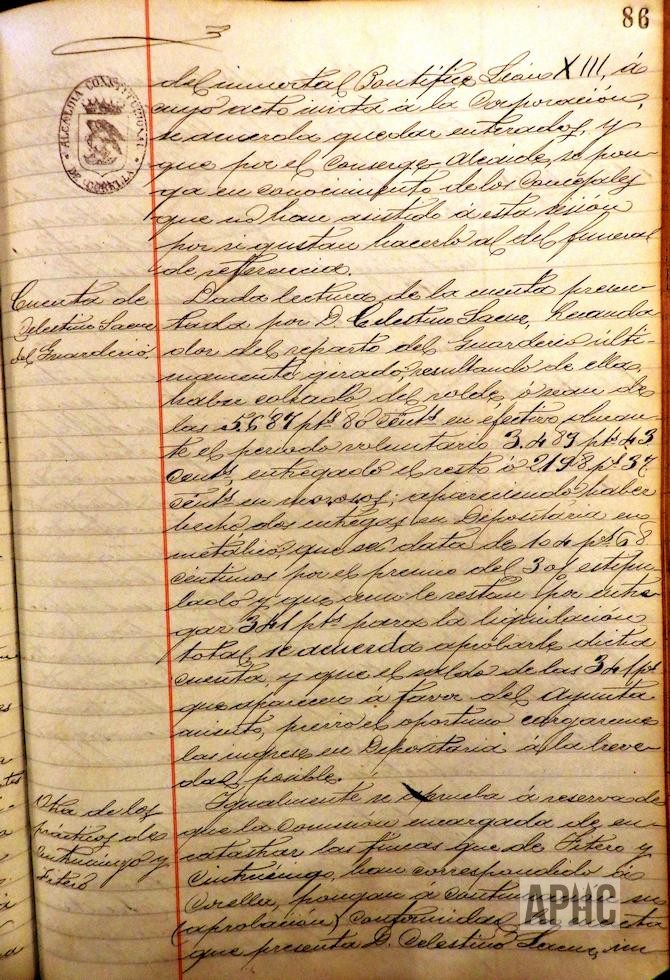 86
ALCALDIA CONSTITUCIONAL
DE CORELLA
del inmortal Pontífice León XIII, á
cuyo acto invita á la Corporación,
se acuerda quedar enterados, y
que por el Conserge Alcaide, se pon-
ga en conocimiento de los Concejales
que no han asistido á esta sesion
por si gustan hacerlo al del funeral
de referencia.
Cuenta de
Celestino Saenz
del Guarderio
Dada lectura de la cuenta presen-
tada por D. Celestino Saenz, Recauda
dor del reparto del Guarderio últi-
mamente girado, resultando de ella,
haber cobrado del rolde, ó sean de
las 5.687 pts 80 cents en efectivo duran-
te el periodo voluntario 3.489 pts 43
cents, entregado el resto ó 2198 pts 37
cents en morosos; apareciendo haber
hecho dos entregas en Depositaria en
metálico, que se data de 104 pts 68
céntimos por el premio del 3 o/o estipu
lado y que aun le restan por entre
gar 341 pts para la liquidación
total, se acuerda aprobarle dicha
cuenta, y que el saldo de las 341 pts
que aparecen á favor del Ayunta
miento, previo el oportuno cargareme
las ingrese en Depositaria á la breve-
dad posible.
Otra de los
de
Cintruenigo y
Fitero
Igualmente se aprueba á reserva de
que la Comisión encargada de en-
catastrar las fincas que de Fitero y
Cintruenigo, han correspondido á
Corella, pongan á continuacion su
(aprobación) conformidad, la cuenta
que presenta D. Celestino Saenz, im
APHC